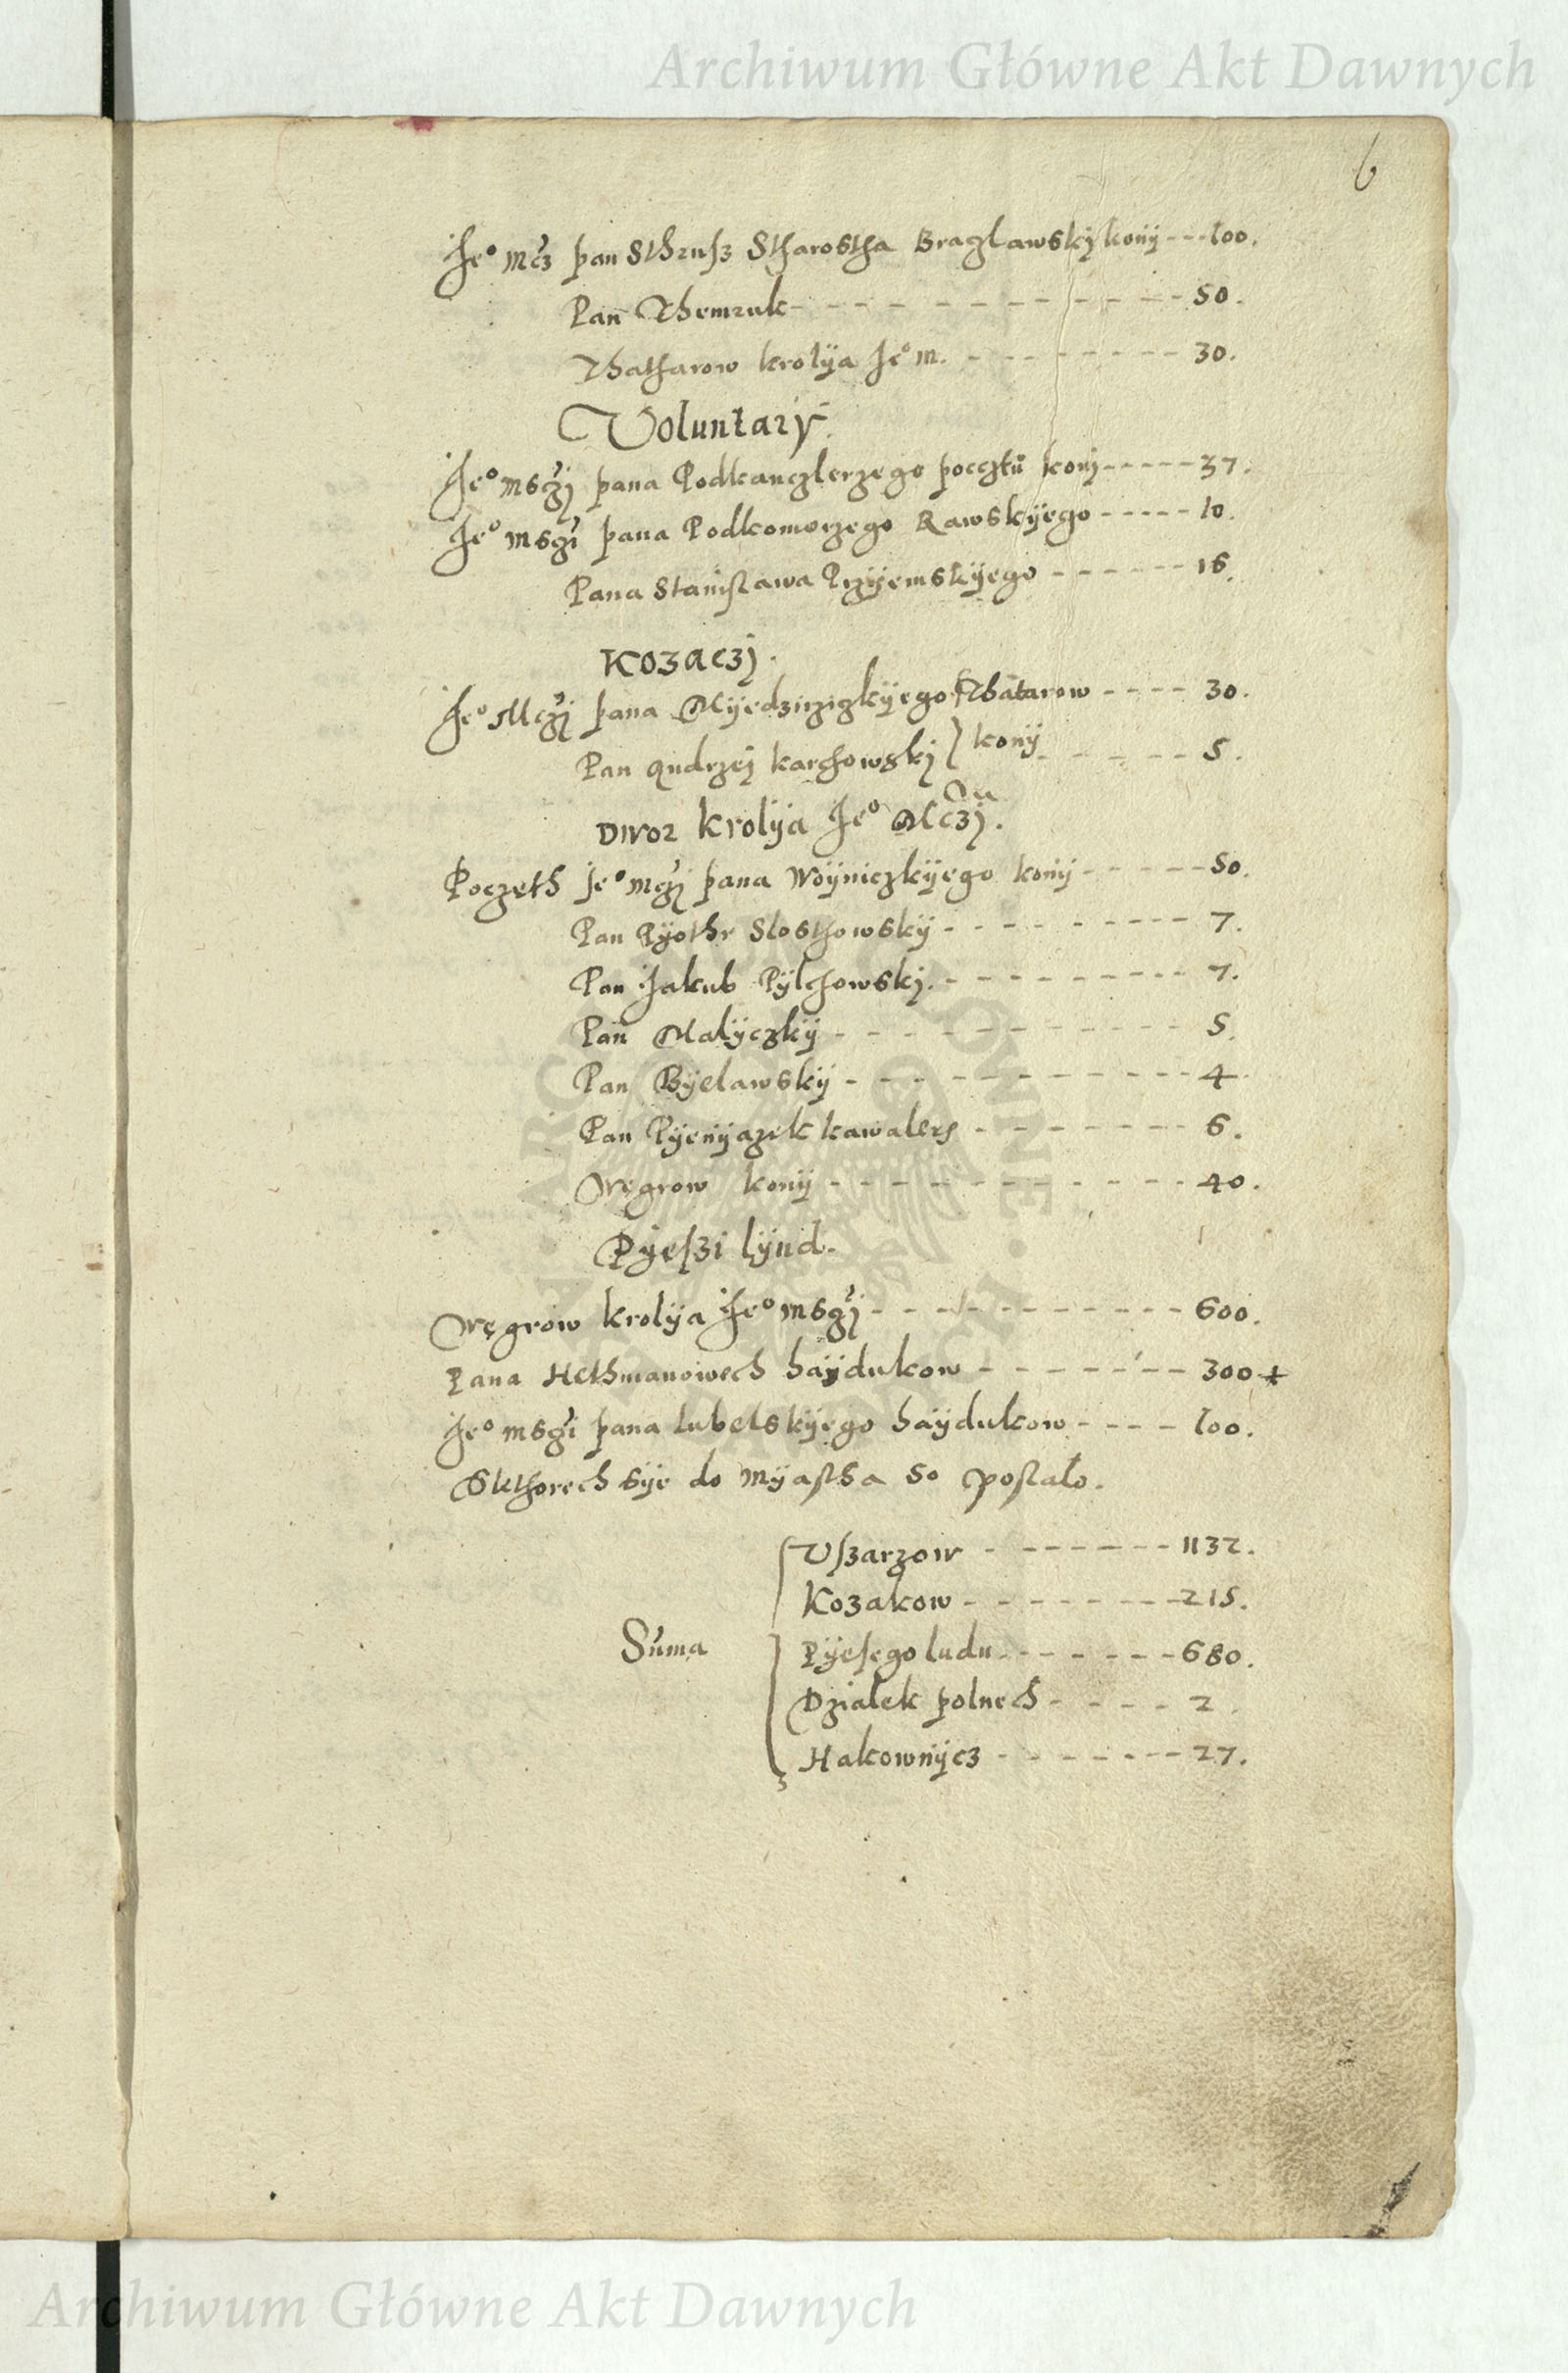 Archiwum Główne Akt Dawnych
6
Je° mcz pan Sthrusz Stharostha Brazlawskÿ konÿ --- 100.
Pan Themruk - - - - - - - - - - - - 50.
Thatharow krolÿa Je° m. - - - - - - - - 30.
Voluntarÿ.
Je° msczÿ pana Podkanczlerzego pocztu konÿ ----- 37.
Je° msczi pana Podkomorzego Rawskÿego ----- 10.
Pana Stanislawa Przÿemskÿego ------ 16.
Kozaczÿ.
Je° Mczÿ pana Mÿedzirziczkÿego Thatarow ---- 30.
Pan Andrzeÿ karchowskÿ } konÿ - - - - - 5.
Dwor krolÿa Je° Mczÿ.
Poczeth Je° mczÿ pana Woÿniczkÿego konÿ ----- 50.
Pan Pÿothr Slosthowskÿ - - - - - - - - - 7.
Pan Jakub Pÿlchowskÿ. - - - - - - - - - 7.
Pan Malÿczkÿ - - - - - - - - - - - - 5.
Pan Bÿelawskÿ - - - - - - - - - - - 4.
Pan Pÿenÿazek kawalers - - - - - - - - 6.
Węgrow konÿ - - - - - - - - - - - - 40.
Pÿeszi lÿud.
Węgrow krolÿa Je° msczÿ - - - - - - - - - - - 600.
Pana Hethmanowech haÿdukow - - - - - - - 300+
Je° msczi pana Lubelskÿego haÿdukow ---- 100.
Skthorech sÿe do mÿastha 50 poslalo.
Suma
Uszarzow - ------- 1132.
Kozakow - - - - - - - - 215.
Pÿesego ludu - - - - - - - 680.
Dzialek polnech - - - - - 2.
Hakownÿcz - - - - - - - 27.
Archiwum Główne Akt Dawnych